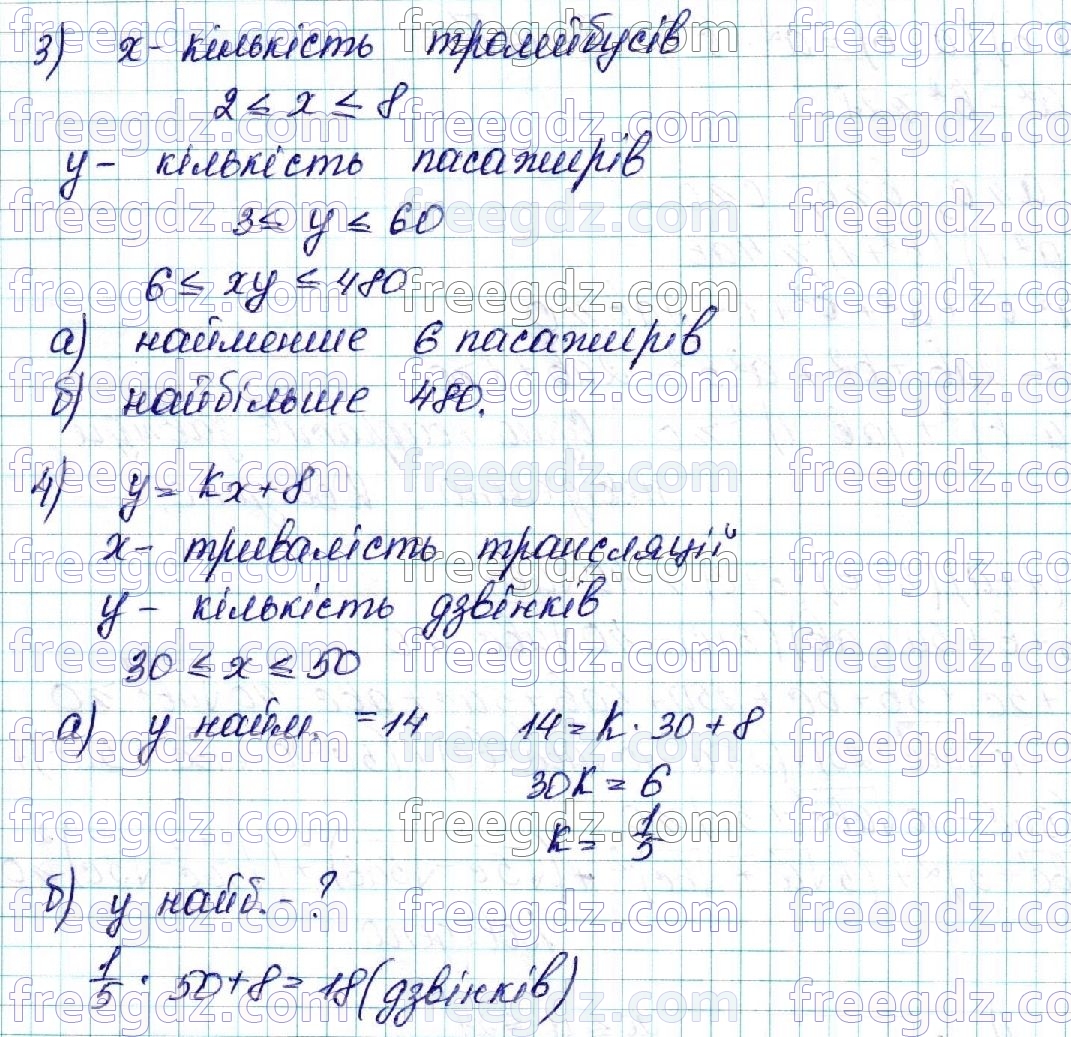 3) x - кількість тролейбусів
2 ≤ x ≤ 8
y - кількість пасажирів
3 ≤ y ≤ 60
6 ≤ xy ≤ 480
а) найменше 6 пасажирів
б) найбільше 480.
4) y = kx + 8
x - тривалість трансляції
y - кількість дзвінків
30 ≤ x ≤ 50
а) y найм. = 14 14 = k · 30 + 8
30k = 6
k = 1/5
б) y найб. - ?
1/5 · 50 + 8 = 18 (дзвінків)
freegdz.com